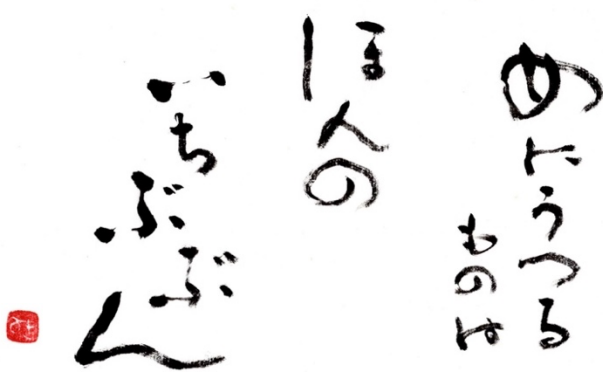 めにうつる
ものは
ほんの
いちぶぶん